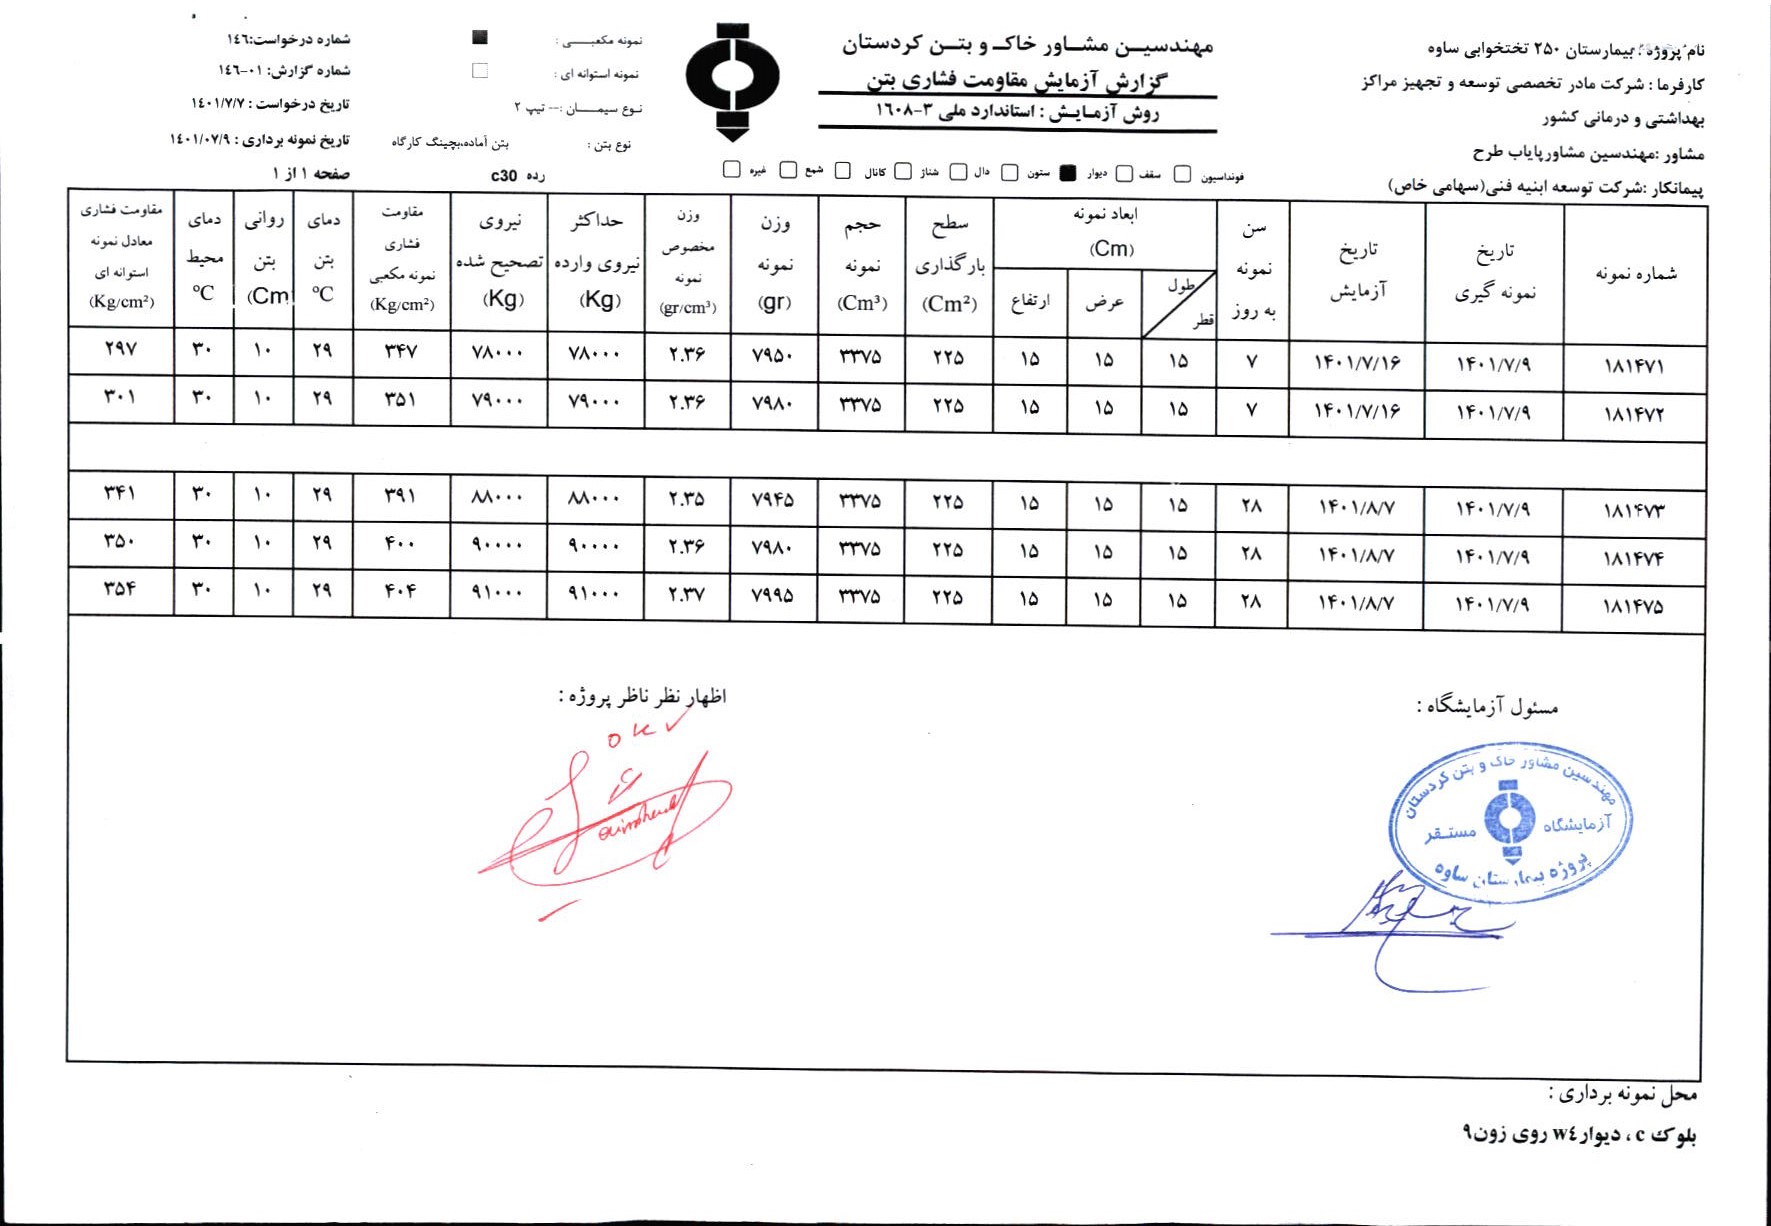 نام پروژه: بیمارستان ۲۵۰ تختخوابی ساوه
کارفرما : شرکت مادر تخصصی توسعه و تجهیز مراکز
بهداشتی و درمانی کشور
مشاور :مهندسین مشاورپایاب طرح
پیمانکار :شرکت توسعه ابنیه فنی(سهامی خاص)
مهندسین مشاور خاک و بتن کردستان
گزارش آزمایش مقاومت فشاری بتن
روش آزمایش : استاندارد ملی ۳-۱٦۰۸
نمونه مکعبی :
نمونه استوانه ای :
نوع سیمان :-- تیپ ۲
نوع بتن : بتن آماده،بچینگ کارگاه
رده c30
شماره درخواست:۱٤٦
شماره گزارش: ۰۱-۱٤٦
تاریخ درخواست : ۱٤۰۱/۷/۷
تاریخ نمونه برداری : ۱٤۰۱/۰۷/۹
صفحه ۱ از ۱
فونداسیون سقف دیوار ستون دال شناژ کانال شمع غیره
شماره نمونه
تاریخ نمونه گیری
تاریخ آزمایش
سن نمونه به روز
ابعاد نمونه (Cm)
طول قطر
عرض
ارتفاع
سطح بارگذاری (Cm²)
حجم نمونه (Cm³)
وزن نمونه (gr)
وزن مخصوص نمونه (gr/cm³)
حداکثر نیروی وارده (Kg)
نیروی تصحیح شده (Kg)
مقاومت فشاری نمونه مکعبی (Kg/cm²)
دمای بتن °C
روانی بتن (Cm)
دمای محیط °C
مقاومت فشاری معادل نمونه استوانه ای (Kg/cm²)
۱۸۱۴۷۱ ۱۴۰۱/۷/۹ ۱۴۰۱/۷/۱۶ ۷ ۱۵ ۱۵ ۱۵ ۲۲۵ ۳۳۷۵ ۷۹۵۰ ۲.۳۶ ۷۸۰۰۰ ۷۸۰۰۰ ۳۴۷ ۲۹ ۱۰ ۳۰ ۲۹۷
۱۸۱۴۷۲ ۱۴۰۱/۷/۹ ۱۴۰۱/۷/۱۶ ۷ ۱۵ ۱۵ ۱۵ ۲۲۵ ۳۳۷۵ ۷۹۸۰ ۲.۳۶ ۷۹۰۰۰ ۷۹۰۰۰ ۳۵۱ ۲۹ ۱۰ ۳۰ ۳۰۱
۱۸۱۴۷۳ ۱۴۰۱/۷/۹ ۱۴۰۱/۸/۷ ۲۸ ۱۵ ۱۵ ۱۵ ۲۲۵ ۳۳۷۵ ۷۹۴۵ ۲.۳۵ ۸۸۰۰۰ ۸۸۰۰۰ ۳۹۱ ۲۹ ۱۰ ۳۰ ۳۴۱
۱۸۱۴۷۴ ۱۴۰۱/۷/۹ ۱۴۰۱/۸/۷ ۲۸ ۱۵ ۱۵ ۱۵ ۲۲۵ ۳۳۷۵ ۷۹۸۰ ۲.۳۶ ۹۰۰۰۰ ۹۰۰۰۰ ۴۰۰ ۲۹ ۱۰ ۳۰ ۳۵۰
۱۸۱۴۷۵ ۱۴۰۱/۷/۹ ۱۴۰۱/۸/۷ ۲۸ ۱۵ ۱۵ ۱۵ ۲۲۵ ۳۳۷۵ ۷۹۹۵ ۲.۳۷ ۹۱۰۰۰ ۹۱۰۰۰ ۴۰۴ ۲۹ ۱۰ ۳۰ ۳۵۴
مسئول آزمایشگاه :
مهندسین مشاور خاک و بتن کردستان
آزمایشگاه مستقر
پروژه بیمارستان ساوه
اظهار نظر ناظر پروژه :
ok
محل نمونه برداری :
بلوک c ، دیوار w٤ روی زون۹